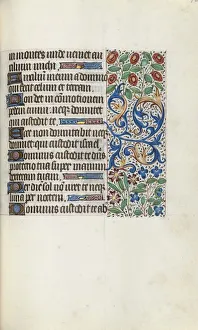 in montes unde veniet au
xilium michi
Auxilium meum a domino
qui fecit celum et terram
Non det in commotionem
pedem tuum neque dormitet
qui custodit te
Ecce non dormitabit neque
dormiet qui custodit israel
Dominus custodit te dns
protectio tua super manum
dexteram tuam
Per diem sol non uret te neq
luna per noctem
Dominus custodit te ab